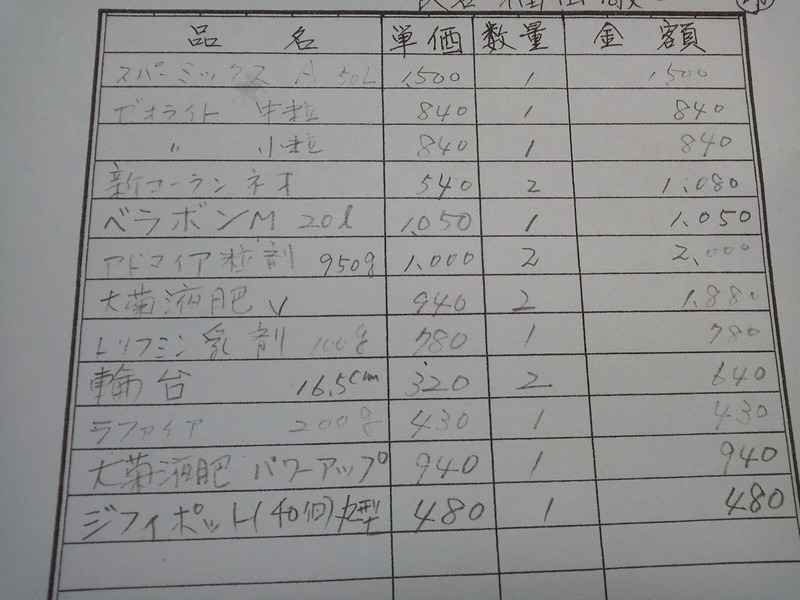 品 名 単価 数量 金 額
スパーミックス A 50L 1,500 1 1,500
ゼオライト 中粒 840 1 840
〃 小粒 840 1 840
新コーラン ネオ 540 2 1,080
ベラボンM 20l 1,050 1 1,050
アドマイア粒剤 950g 1,000 2 2,000
大菊液肥 V 940 2 1,880
トリフミン乳剤 100g 780 1 780
輪台 16.5cm 320 2 640
ラファイア 200g 430 1 430
大菊液肥 パワーアップ 940 1 940
ジフィポット(40個) 480 1 480